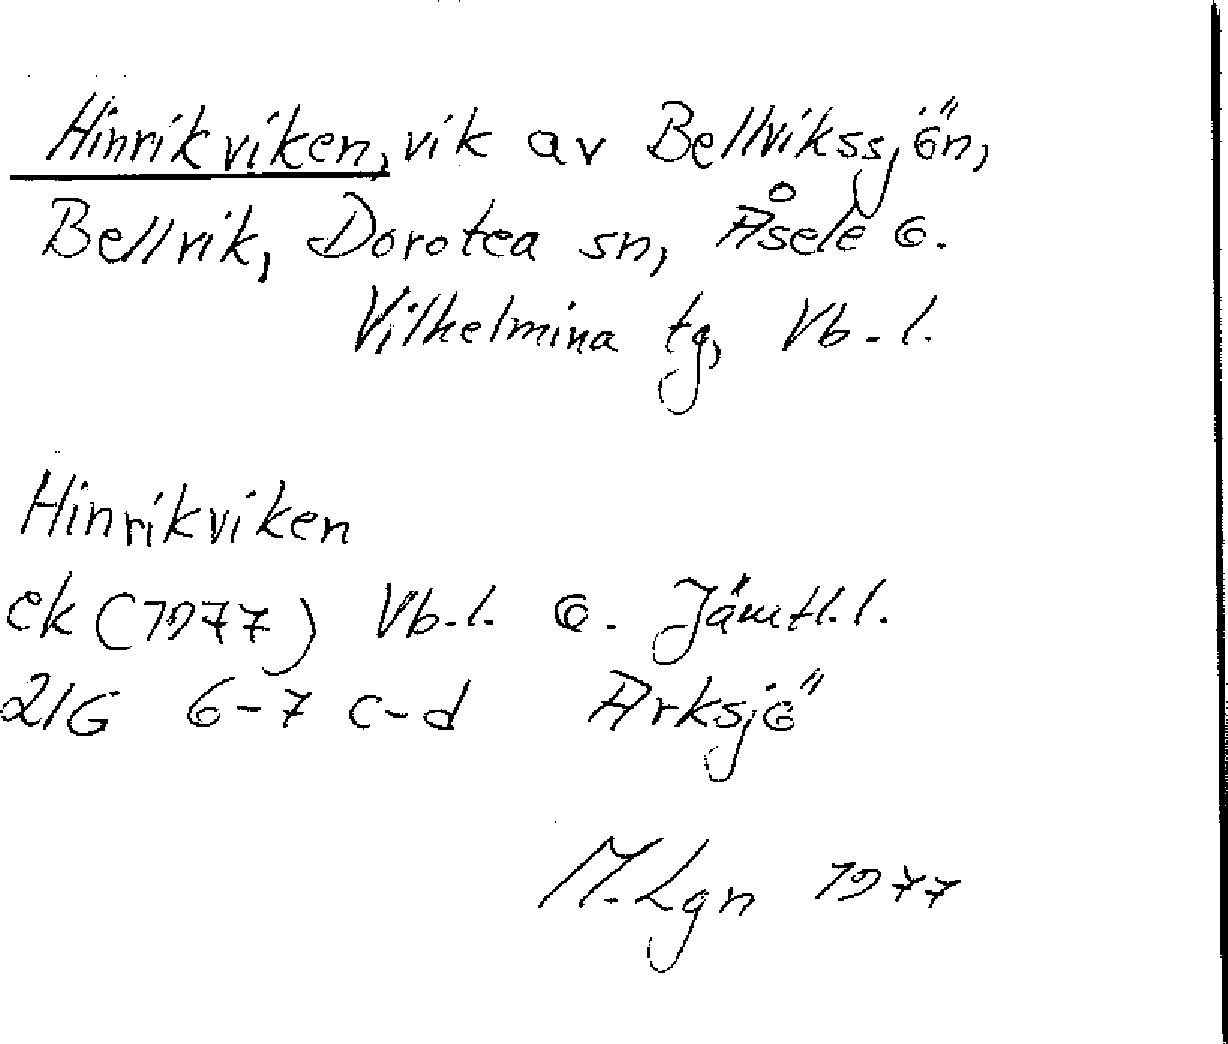 Hinrikviken, vik av Bellvikssjön,
Bellvik, Dorotea sn, Åsele o.
Vilhelmina tg, Vb-l.
Hinrikviken
ek (1977) Vb.l. o. Jämtl.l.
21G 6-7 c-d Arksjö
M.Lgn 1977